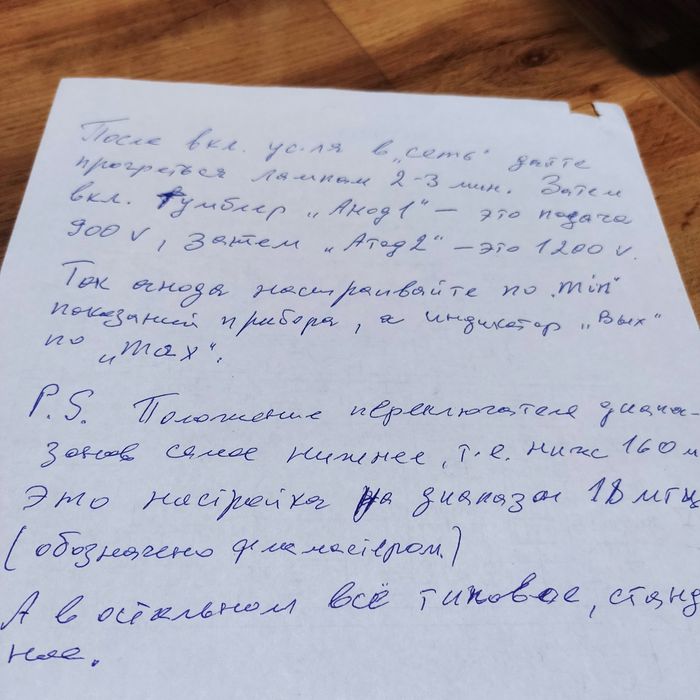 После вкл. ус-ля в „сеть" дайте
прогреться лампам 2-3 мин. Затем
вкл. тумблер „Анод1" – это подача
900 v, затем „Атод2" – это 1200 v.
Ток анода настраивайте по „min"
показаний прибора, а индикатор „Вых"
по „max".
P.S. Положение переключателя диапа-
зонов самое нижнее, т.е. ниже 160 м
Это настройка на диапазон 18 мгц
(обозначено фламастером.)
А в остальном всё типовое, станд
ное.